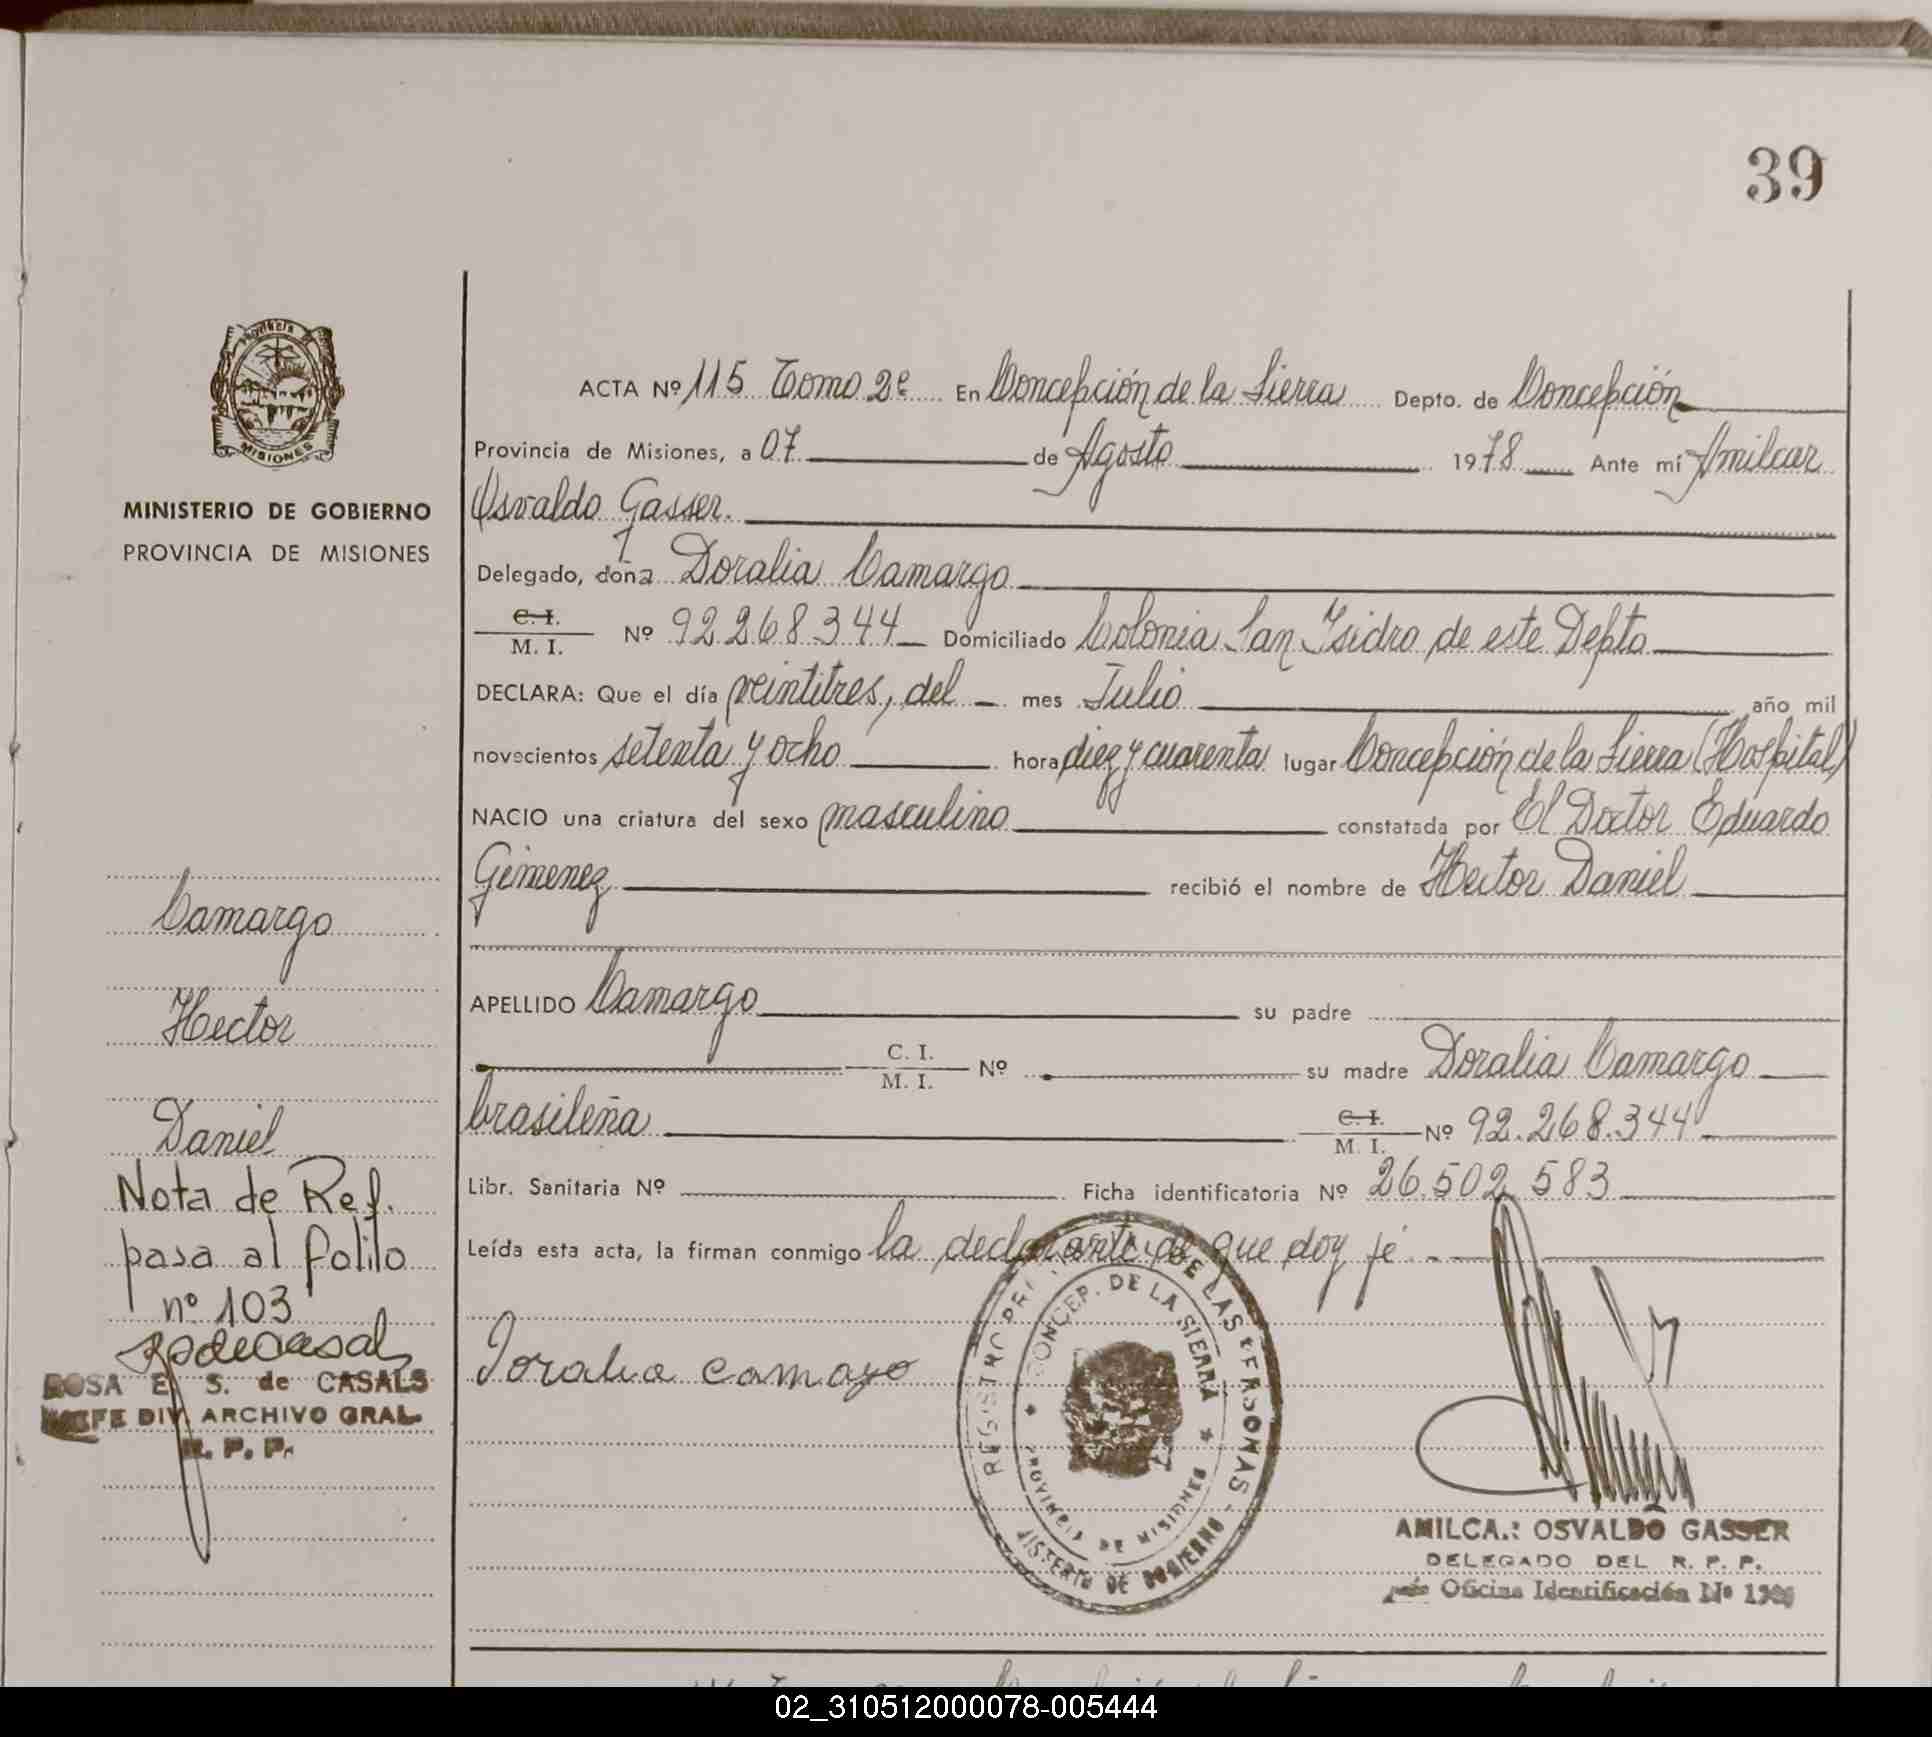 39
MISIONES
MINISTERIO DE GOBIERNO
PROVINCIA DE MISIONES
ACTA Nº 115 Tomo 2º En Concepción de la Sierra Depto. de Concepción
Provincia de Misiones, a 07 de Agosto 1978 Ante mí Amilcar
Osvaldo Gasser.
Delegado, doña Doralia Camargo
C. I.
M. I. Nº 92.268.344 Domiciliado Colonia San Isidro de este Depto
DECLARA: Que el día veintitres, del mes Julio año mil
novecientos setenta y ocho hora diez y cuarenta lugar Concepción de la Sierra (Hospital)
NACIO una criatura del sexo masculino constatada por El Doctor Eduardo
Gimenez recibió el nombre de Hector Daniel
APELLIDO Camargo su padre
C. I.
M. I. Nº su madre Doralia Camargo
brasileña C. I.
M. I. Nº 92.268.344
Libr. Sanitaria Nº Ficha identificatoria Nº 26.502.583
Leída esta acta, la firman conmigo la declarante de que doy fé.
Camargo
Hector
Daniel
Nota de Ref.
pasa al folilo
nº 103
ROSA E. S. de CASALS
JEFE DIV. ARCHIVO GRAL.
R. P. P.
Doralia camargo
DE LAS PERSONAS
CONCEP. DE LA SIERRA
PROVINCIA DE MISIONES
MINISTERIO DE GOBIERNO
AMILCAR OSVALDO GASSER
DELEGADO DEL R. P. P.
Oficina Identificación Nº
02_310512000078-005444